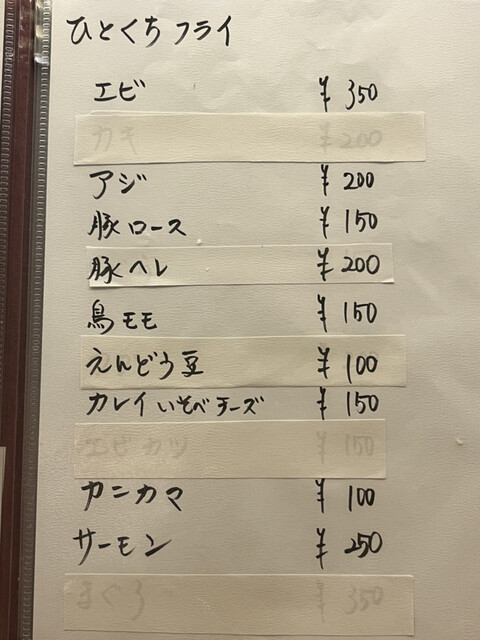 ひとくちフライ
エビ ¥350
カキ ¥200
アジ ¥200
豚ロース ¥150
豚ヘレ ¥200
鳥モモ ¥150
えんどう豆 ¥100
カレイいそべチーズ ¥150
エビカツ ¥150
カニカマ ¥100
サーモン ¥250
まぐろ ¥350